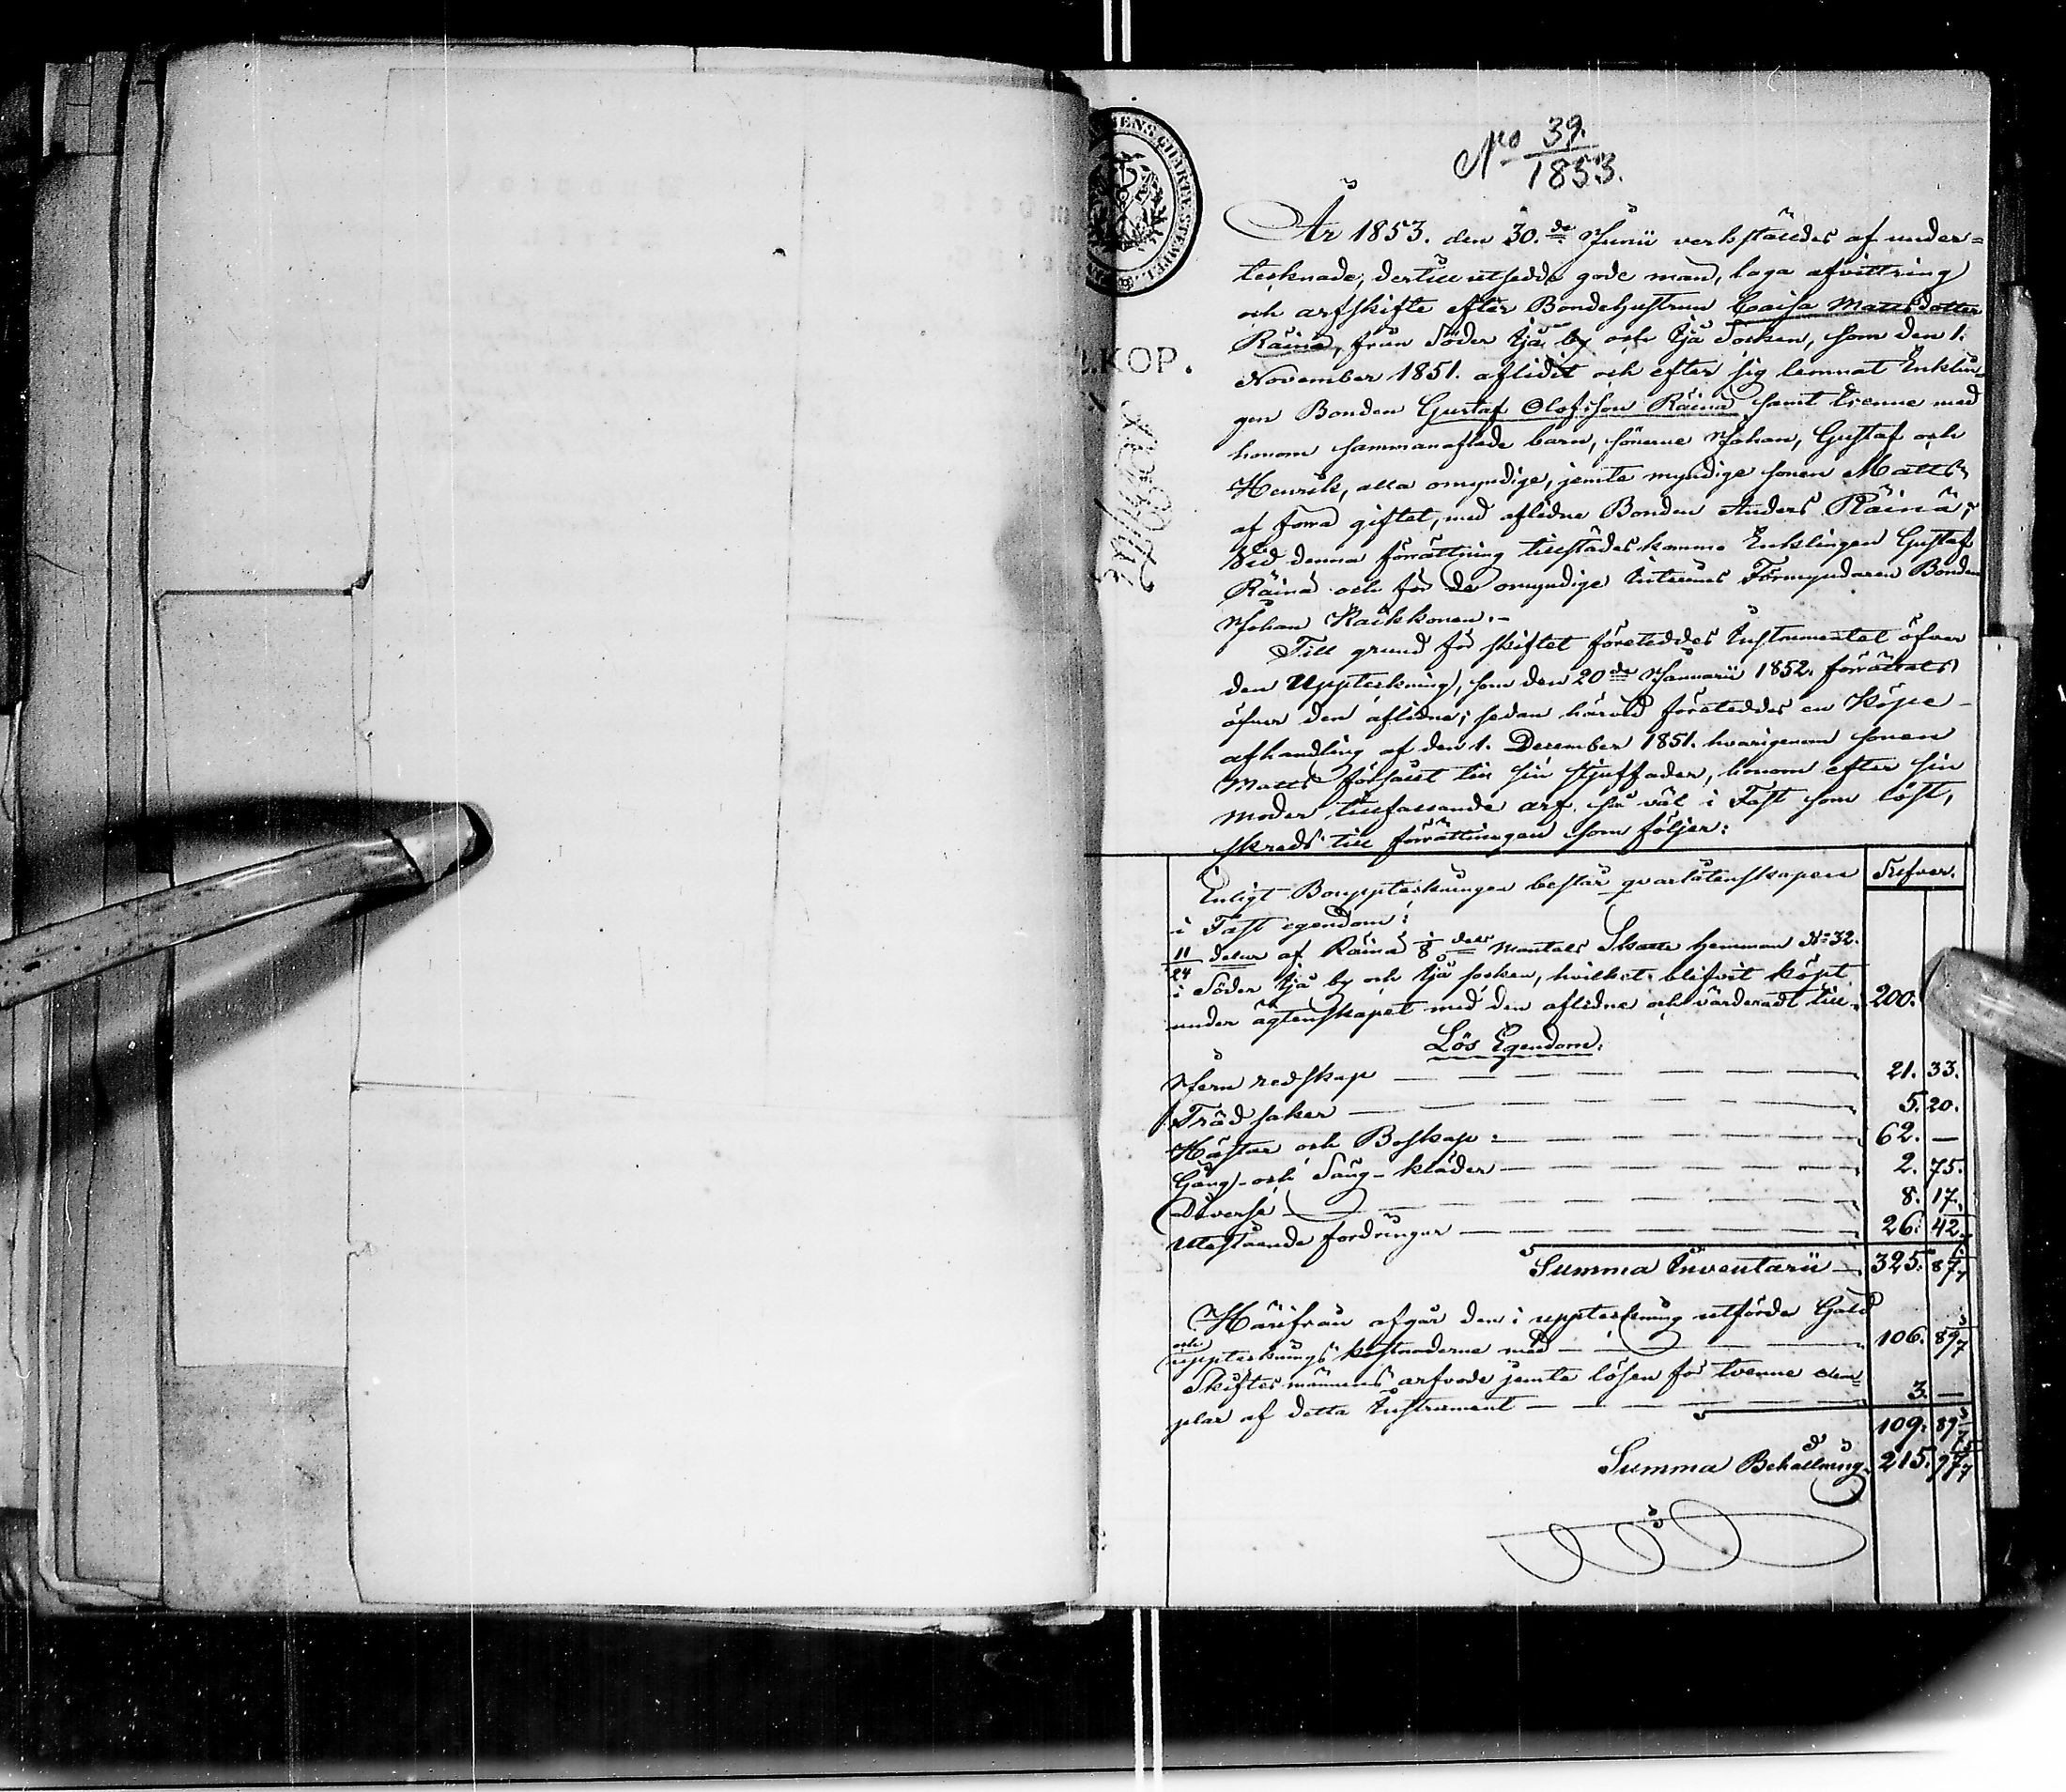 No 39.
1853.
År 1853. den 30.de Junii verkställdes af under=
tecknade, dertill utsedde gode män, laga afvittring
och arfskifte efter Bondehustrun Caisa Mattsdotter
Räinä, från Söder Ijå by och Ijå Socken, som den 1.
November 1851. aflidit och efter sig lemnat Enklin=
gen Bonden Gustaf Olofsson Räinä samt trenne med
honom sammanaflade barn, sönerne Johan, Gustaf och
Henrik, alla omyndige, jemte myndige sonen Matts
af förra giftet, med aflidne Bonden Anders Räinä;
Vid denna förrättning tillstädeskommo Enklingen Gustaf
Räinä och för de omyndige Interims Förmyndaren Bonden
Johan Raikkonen.-
Till grund för skiftet företeddes Instrumentet öfver
den Uppteckning, som den 20de Januarii 1852. förrättats
öfver den aflidne; sedan härvid företeddes en Köpe-
afhandling af den 1. December 1851. hvarigenom sonen
Matts försålt till sin stjuffader, honom efter sin
moder tillfallande arf så väl i Fast som löst,
skreds till förrättningen som följer:
Enligt Bouppteckningen består qvarlåtenskapen
Silfver.
i Fast egendom:
11/24 delar af Räinä 1/8 dels mantals Skatte hemman No 32.
i Söder Ijå by och Ijå socken, hvilket blifvit köpt
under ägtenskapet med den aflidne och värderadt till. 200.
Lös Egendom.
Jern redskap — 21. 33.
Träd saker — 5. 20.
Hästar och Boskap: — 62. —
Gång- och Säng-kläder — 2. 75.
Diverse — 8. 17.
Utestående fordringar — 26. 42.
Summa Inventarii — 325. 87
Härifrån afgår den i uppteckning utförde Gäld
och uppteckningskostnaderne med — 106. 89 3/7
Skiftesmännens arfvode jemte lösen för tvenne exem=
plar af detta Instrument — 3. —
109. 89 3/7
Summa Behållning. 215. 97
KOP.